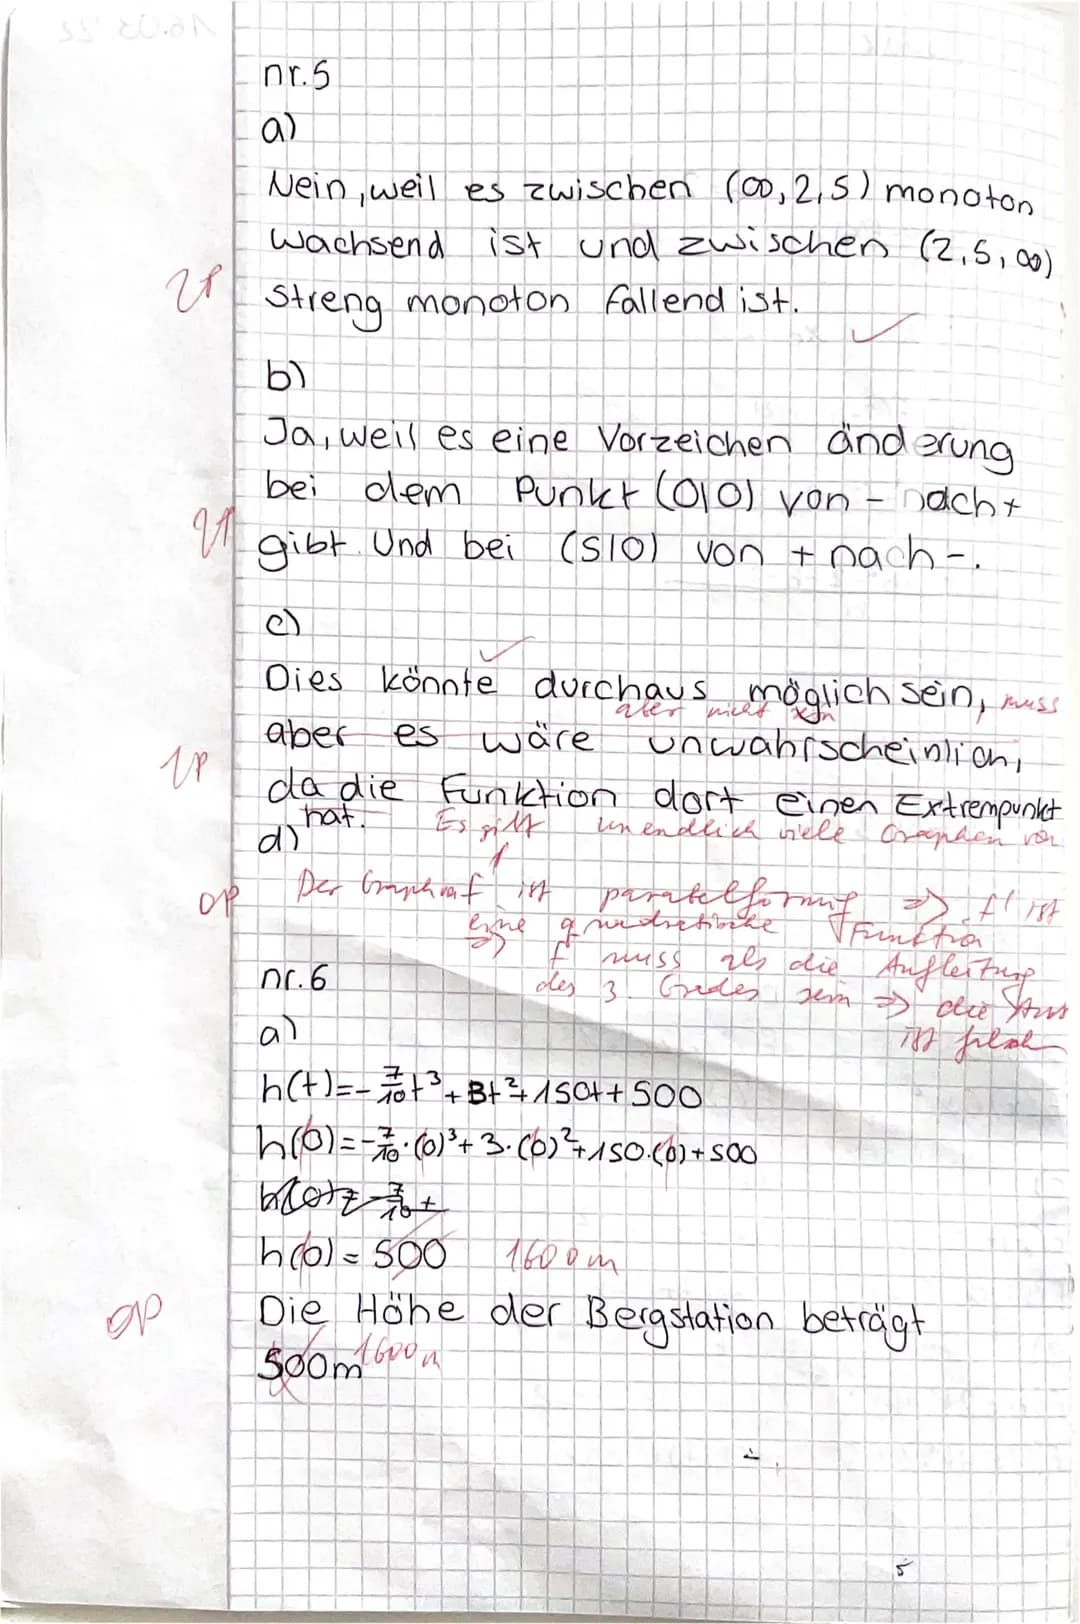 16.03.22
nr.5
a)
Nein, weil es zwischen (∞, 2,5) monoton
wachsend ist und zwischen (2,5, ∞)
2P streng monoton fallend ist. ✓
b)
Ja, weil es eine Vorzeichen änderung
bei dem Punkt (0|0) von - nach +
2P gibt. Und bei (5|0) von + nach -.
c)
Dies könnte durchaus möglich sein, muss
aber nicht sein
aber es wäre unwahrscheinlich,
1P
da die Funktion dort einen Extrempunkt
hat. Es gibt unendlich viele Graphen von
d)
0P Der Graph von f' ist parabelförmig => f' ist
eine quadratische Funktion
=> f muss als die Aufleitung
des 3. Grades sein => die Aus
ist falsch
nr.6
a)
h(t)=-7/10t³+3t²+150t+500
h(0)=-7/10·(0)³+3·(0)²+150·(0)+500
h(0)=500 1600m
0P Die Höhe der Bergstation beträgt
500m 1600m
5